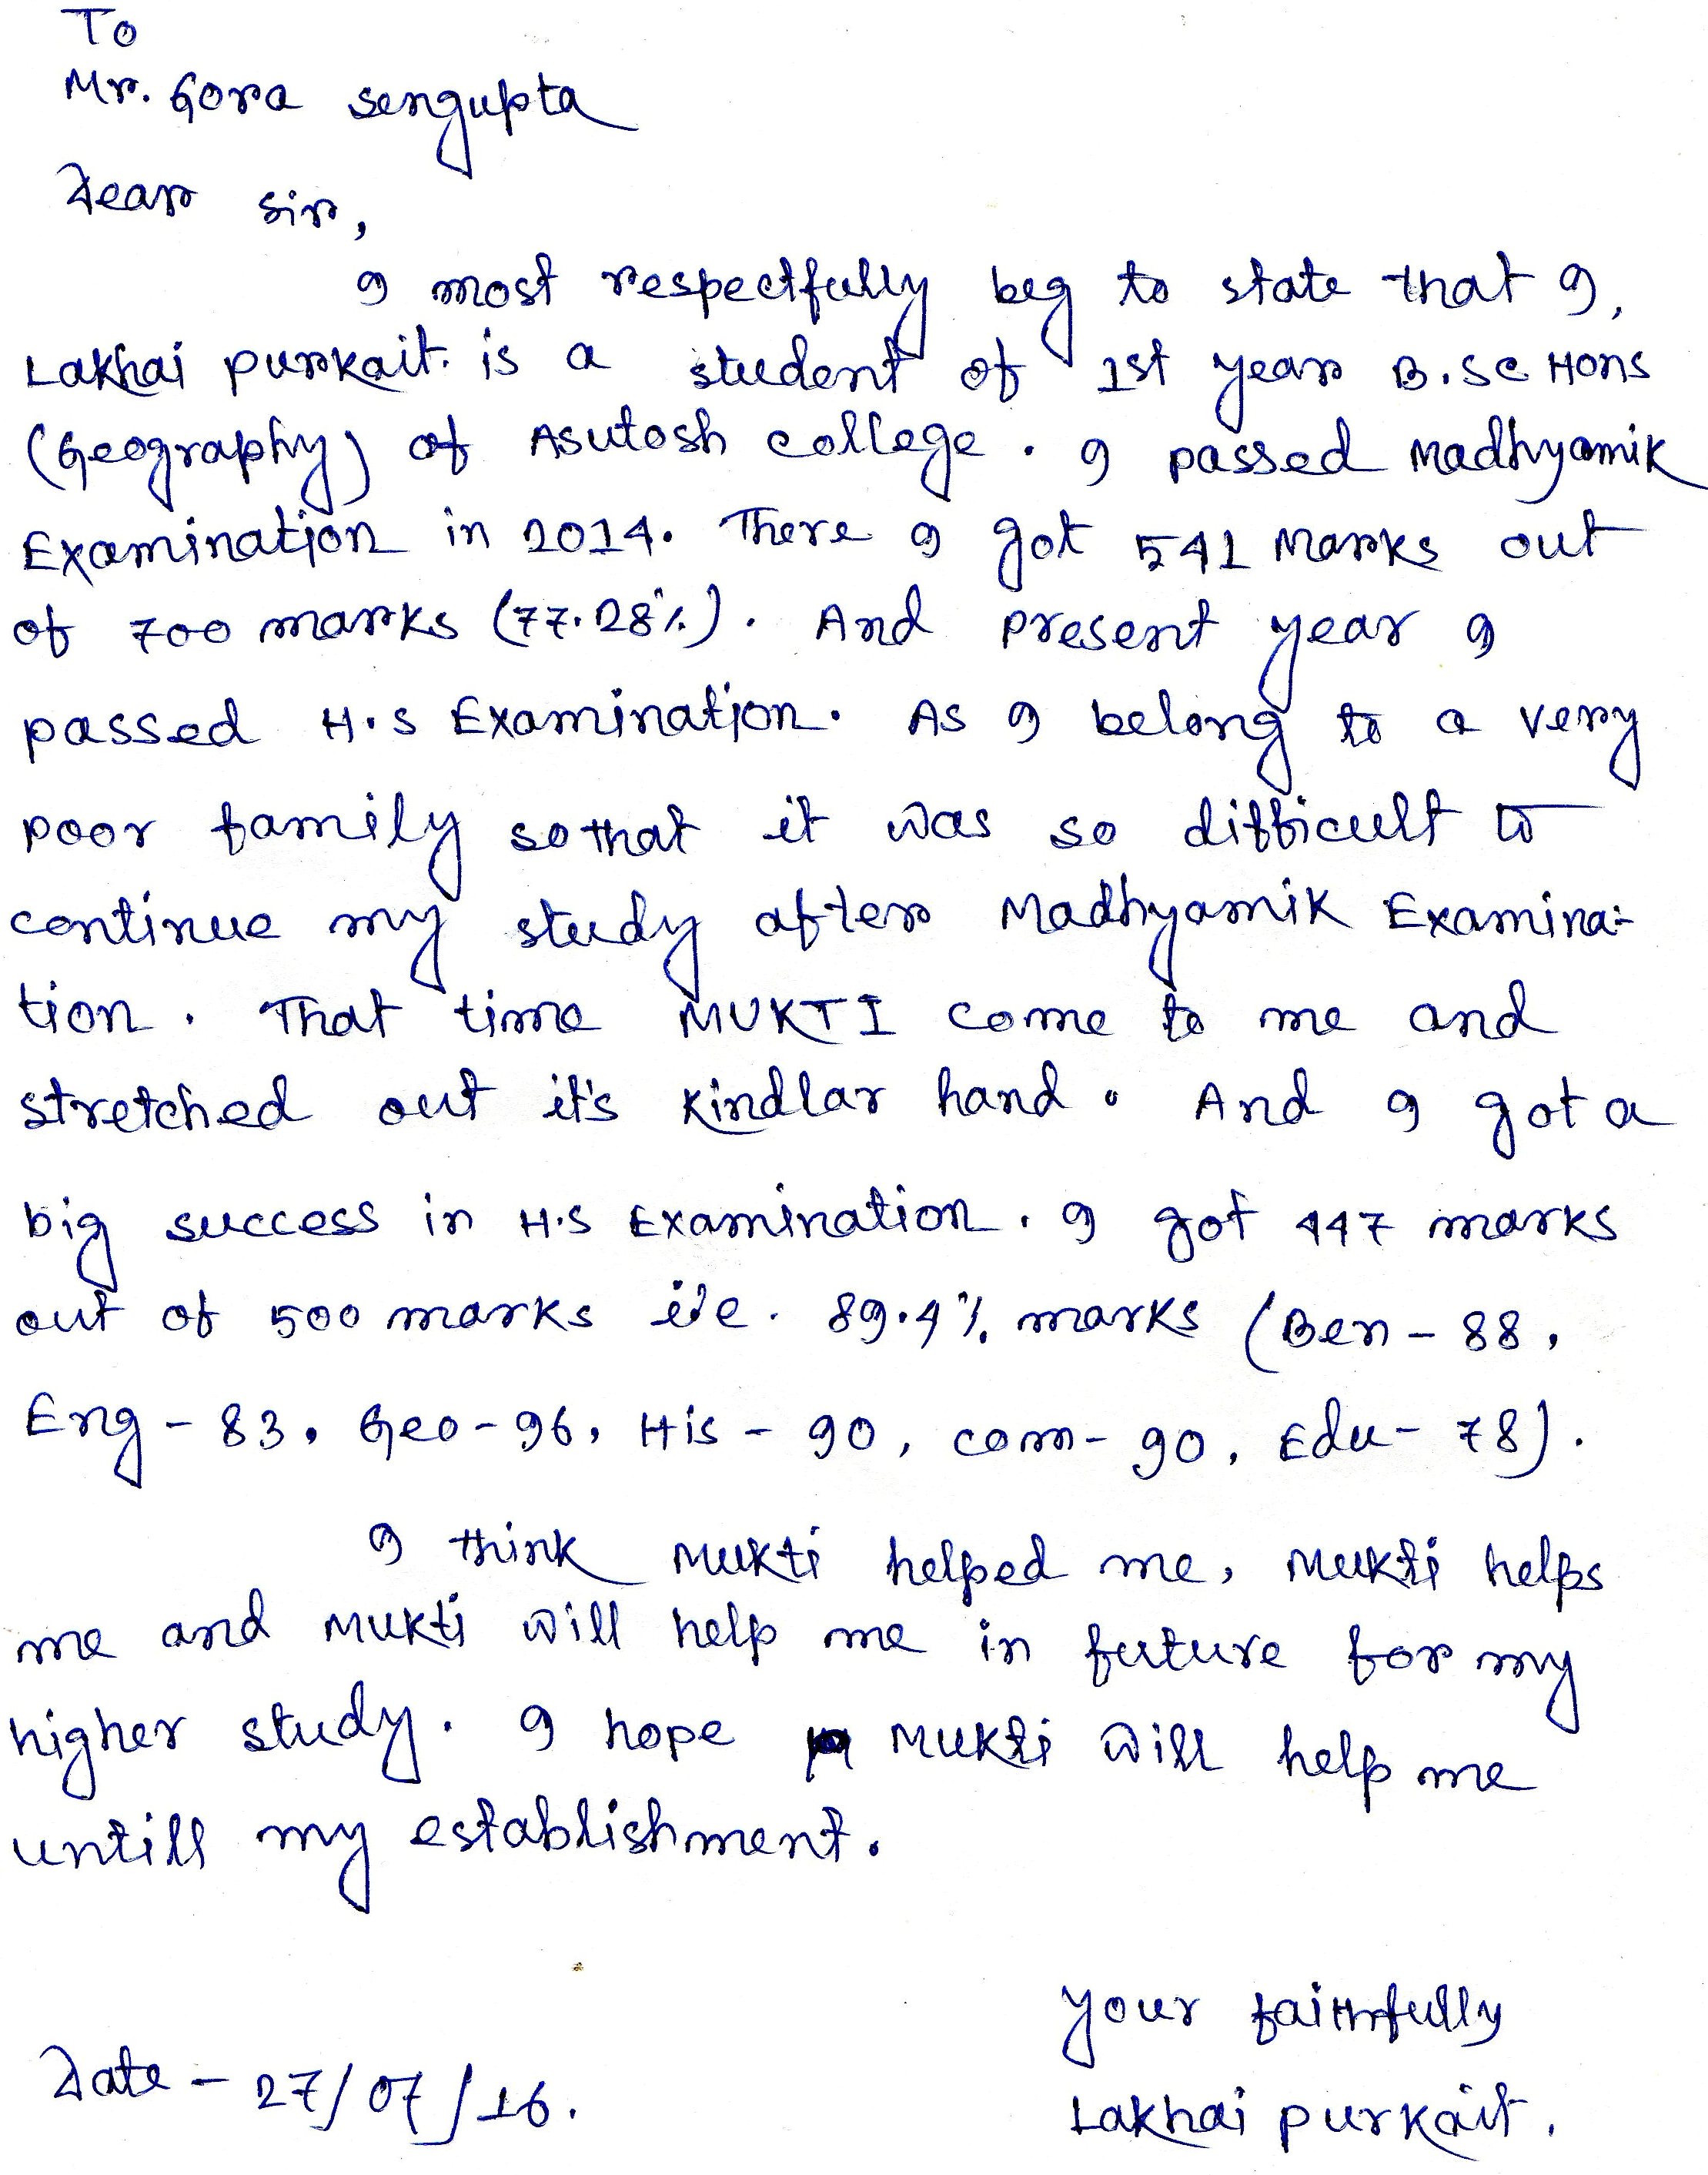 To
Mr. Gora Sengupta
Dear Sir,
I most respectfully beg to state that I,
Lakhai Purkait. is a student of 1st year B.Sc Hons
(Geography) of Asutosh college. I passed Madhyamik
Examination in 2014. There I got 541 Marks out
of 700 marks (77.28%). And present year I
passed H.S Examination. As I belong to a very
poor family so that it was so difficult to
continue my study after Madhyamik Examina-
tion. That time MUKTI come to me and
stretched out it's kindlar hand. And I got a
big success in H.S Examination. I got 447 marks
out of 500 marks i.e. 89.4% marks (Ben - 88,
Eng - 83, Geo - 96, His - 90, com - 90, Edu - 78).
I think Mukti helped me, Mukti helps
me and Mukti will help me in future for my
higher study. I hope Mukti will help me
untill my establishment.
Your faithfully
Date - 27/07/16.
Lakhai Purkait.